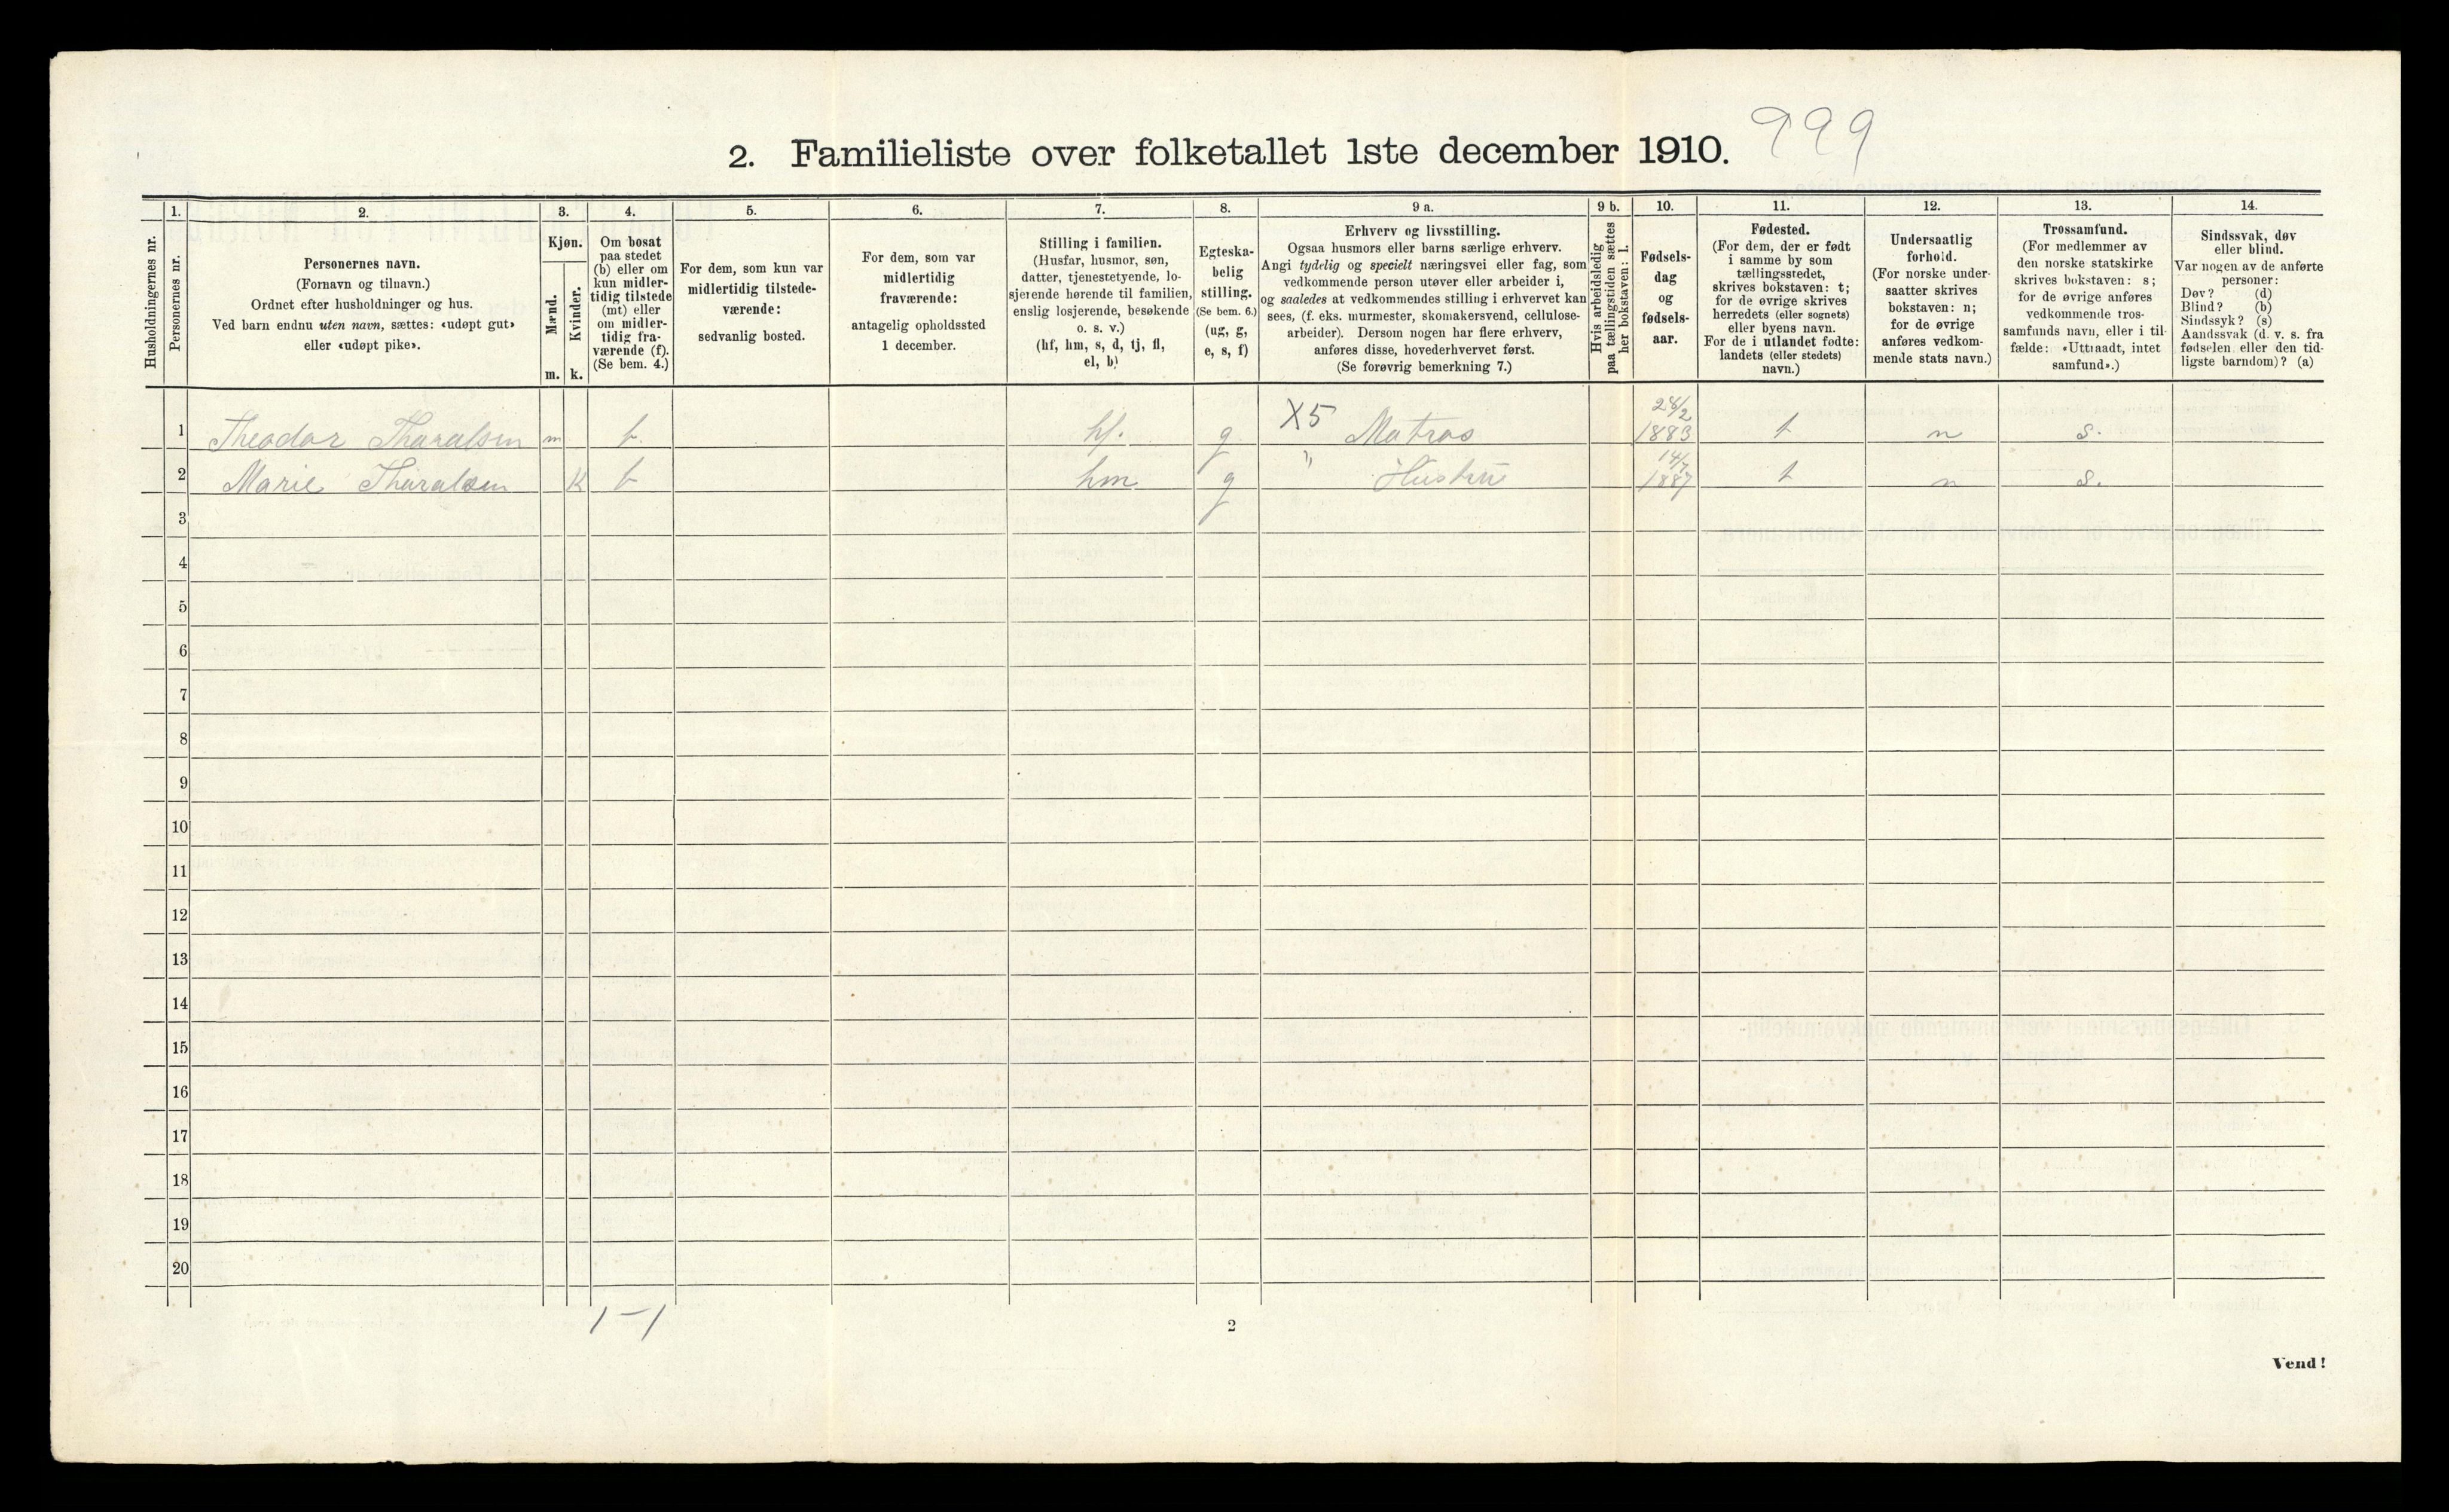 2. Familieliste over folketallet 1ste december 1910. 999
Husholdningernes nr.
1.
Personernes nr.
2.
Personernes navn.
(Fornavn og tilnavn.)
Ordnet efter husholdninger og hus.
Ved barn endnu uten navn, sættes: «udøpt gut»
eller «udøpt pike».
3.
Kjøn.
Mænd.
m.
Kvinder.
k.
4.
Om bosat
paa stedet
(b) eller om
kun midler-
tidig tilstede
(mt) eller
om midler-
tidig fra-
værende (f).
(Se bem. 4.)
5.
For dem, som kun var
midlertidig tilstede-
værende:
sedvanlig bosted.
6.
For dem, som var
midlertidig
fraværende:
antagelig opholdssted
1 december.
7.
Stilling i familien.
(Husfar, husmor, søn,
datter, tjenestetyende, lo-
sjerende hørende til familien,
enslig losjerende, besøkende
o. s. v.)
(hf, hm, s, d, tj, fl,
el, b)
8.
Egteska-
belig
stilling.
(Se bem. 6.)
(ug, g,
e, s, f)
9 a.
Erhverv og livsstilling.
Ogsaa husmors eller barns særlige erhverv.
Angi tydelig og specielt næringsvei eller fag, som
vedkommende person utøver eller arbeider i,
og saaledes at vedkommendes stilling i erhvervet kan
sees, (f. eks. murmester, skomakersvend, cellulose-
arbeider). Dersom nogen har flere erhverv,
anføres disse, hovederhvervet først.
(Se forøvrig bemerkning 7.)
9 b.
Hvis arbeidsledig
paa tællingstiden sættes
her bokstaven: l.
10.
Fødsels-
dag
og
fødsels-
aar.
11.
Fødested.
(For dem, der er født
i samme by som
tællingsstedet,
skrives bokstaven: t;
for de øvrige skrives
herredets (eller sognets)
eller byens navn.
For de i utlandet fødte:
landets (eller stedets)
navn.)
12.
Undersaatlig
forhold.
(For norske under-
saatter skrives
bokstaven: n;
for de øvrige
anføres vedkom-
mende stats navn.)
13.
Trossamfund.
(For medlemmer av
den norske statskirke
skrives bokstaven: s;
for de øvrige anføres
vedkommende tros-
samfunds navn, eller i til-
fælde: «Uttraadt, intet
samfund».)
14.
Sindssvak, døv
eller blind.
Var nogen av de anførte
personer:
Døv? (d)
Blind? (b)
Sindssyk? (s)
Aandssvak (d. v. s. fra
fødselen eller den tid-
ligste barndom)? (a)
1 Theodor Tharalsen m b. hf. g X5 Matros 1883 t n s.
2 Marie Tharalsen K b hm g " Hustru 14/7 1887 t n s.
3
4
5
6
7
8
9
10
11
12
13
14
15
16
17
18
19
20
1 – 1
2
Vend!